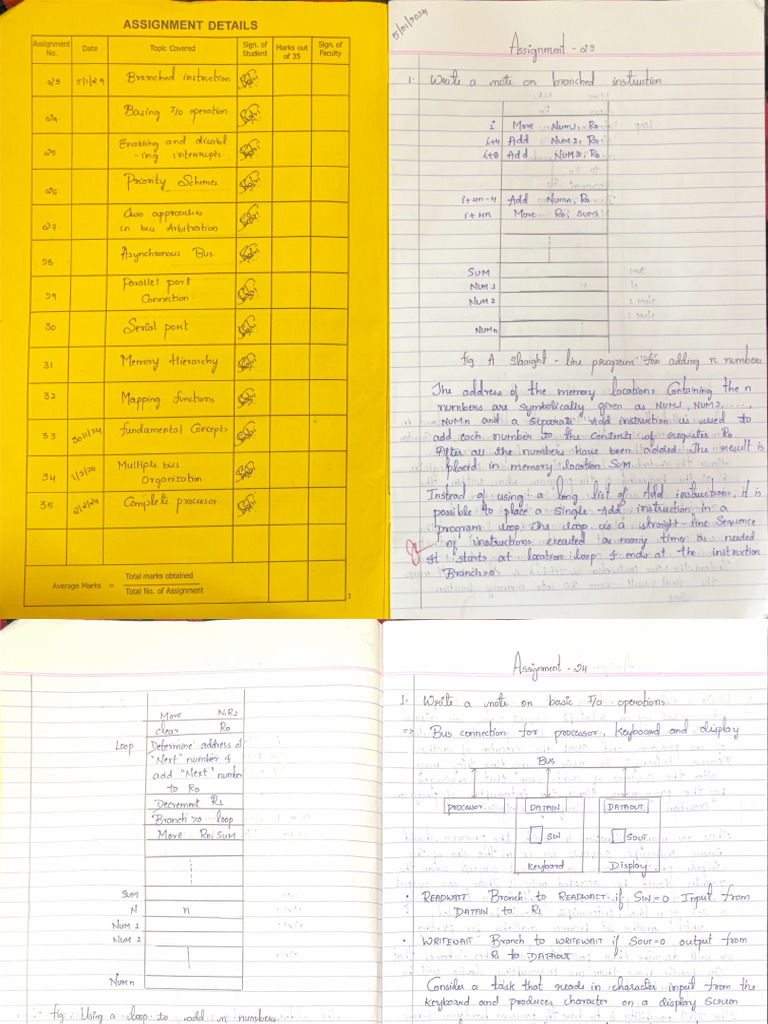 ASSIGNMENT DETAILS
Assignment No. Date Topic Covered Sign. of Student Marks out of 35 Sign. of Faculty
23 5/1/24 Branched instruction
24. Basing I/o operation
25 Enabling and disabl
-ing interrupts
26 Priority Schemes
27 two approaches
in bus Arbitration
28 Asynchronous Bus
29 Parallel port
Connection
30 Serial port
31 Memory Hierarchy
32 Mapping functions
33 30/1/24 fundamental Concepts
34 Multiple bus
Organization
35. 2/2/24 Complete processor
Average Marks = Total marks obtained
Total No. of Assignment
2
5/01/2024
Assignment - 23
1. Write a note on branched instruction
i Move Num1, Ro
i+4 Add NUM2, Ro
i+8 Add NUM3, Ro
i+4n-4 Add Numn, Ro
i+4n Move Ro, SUM
SUM
NUM 1
NUM 2
NUMn
Fig A straight - line program for adding n numbers
The address of the memory locations Containing the n
numbers are symbolically given as NUM1, NUM2, ....,
NUMn and a separate Add instruction is used to
add each number to the contents of register Ro
After all the numbers have been added the result is
placed in memory location SUM.
Instead of using a long list of Add instructions, it is
possible to place a single Add instruction in a
program loop the loop is a straight-line Sequence
of instructions executed as many times as needed
It starts at location loop & ends at the instruction
Branch>o
Move N,R1
clear Ro
Loop Determine address of
"Next" number &
add "Next" number
to Ro
Decrement R1
Branch>o loop
Move Ro, SUM
SUM
N n
NUM 1
NUM 2
NUMn
fig: Using a loop to add n numbers
Assignment - 24
1. Write a note on basic I/o operations
=> Bus connection for processor, keyboard and display
Bus
processor DATAIN DATAOUT
SIN SOUT
Keyboard Display
• READWAIT Branch to READWAIT if SIN=0 Input from
DATAIN to R1
• WRITEWAIT Branch to WRITEWAIT if SOUT=0 output from
R1 to DATAOUT
Consider a task that reads in character input from the
keyboard and produces character on a display screen